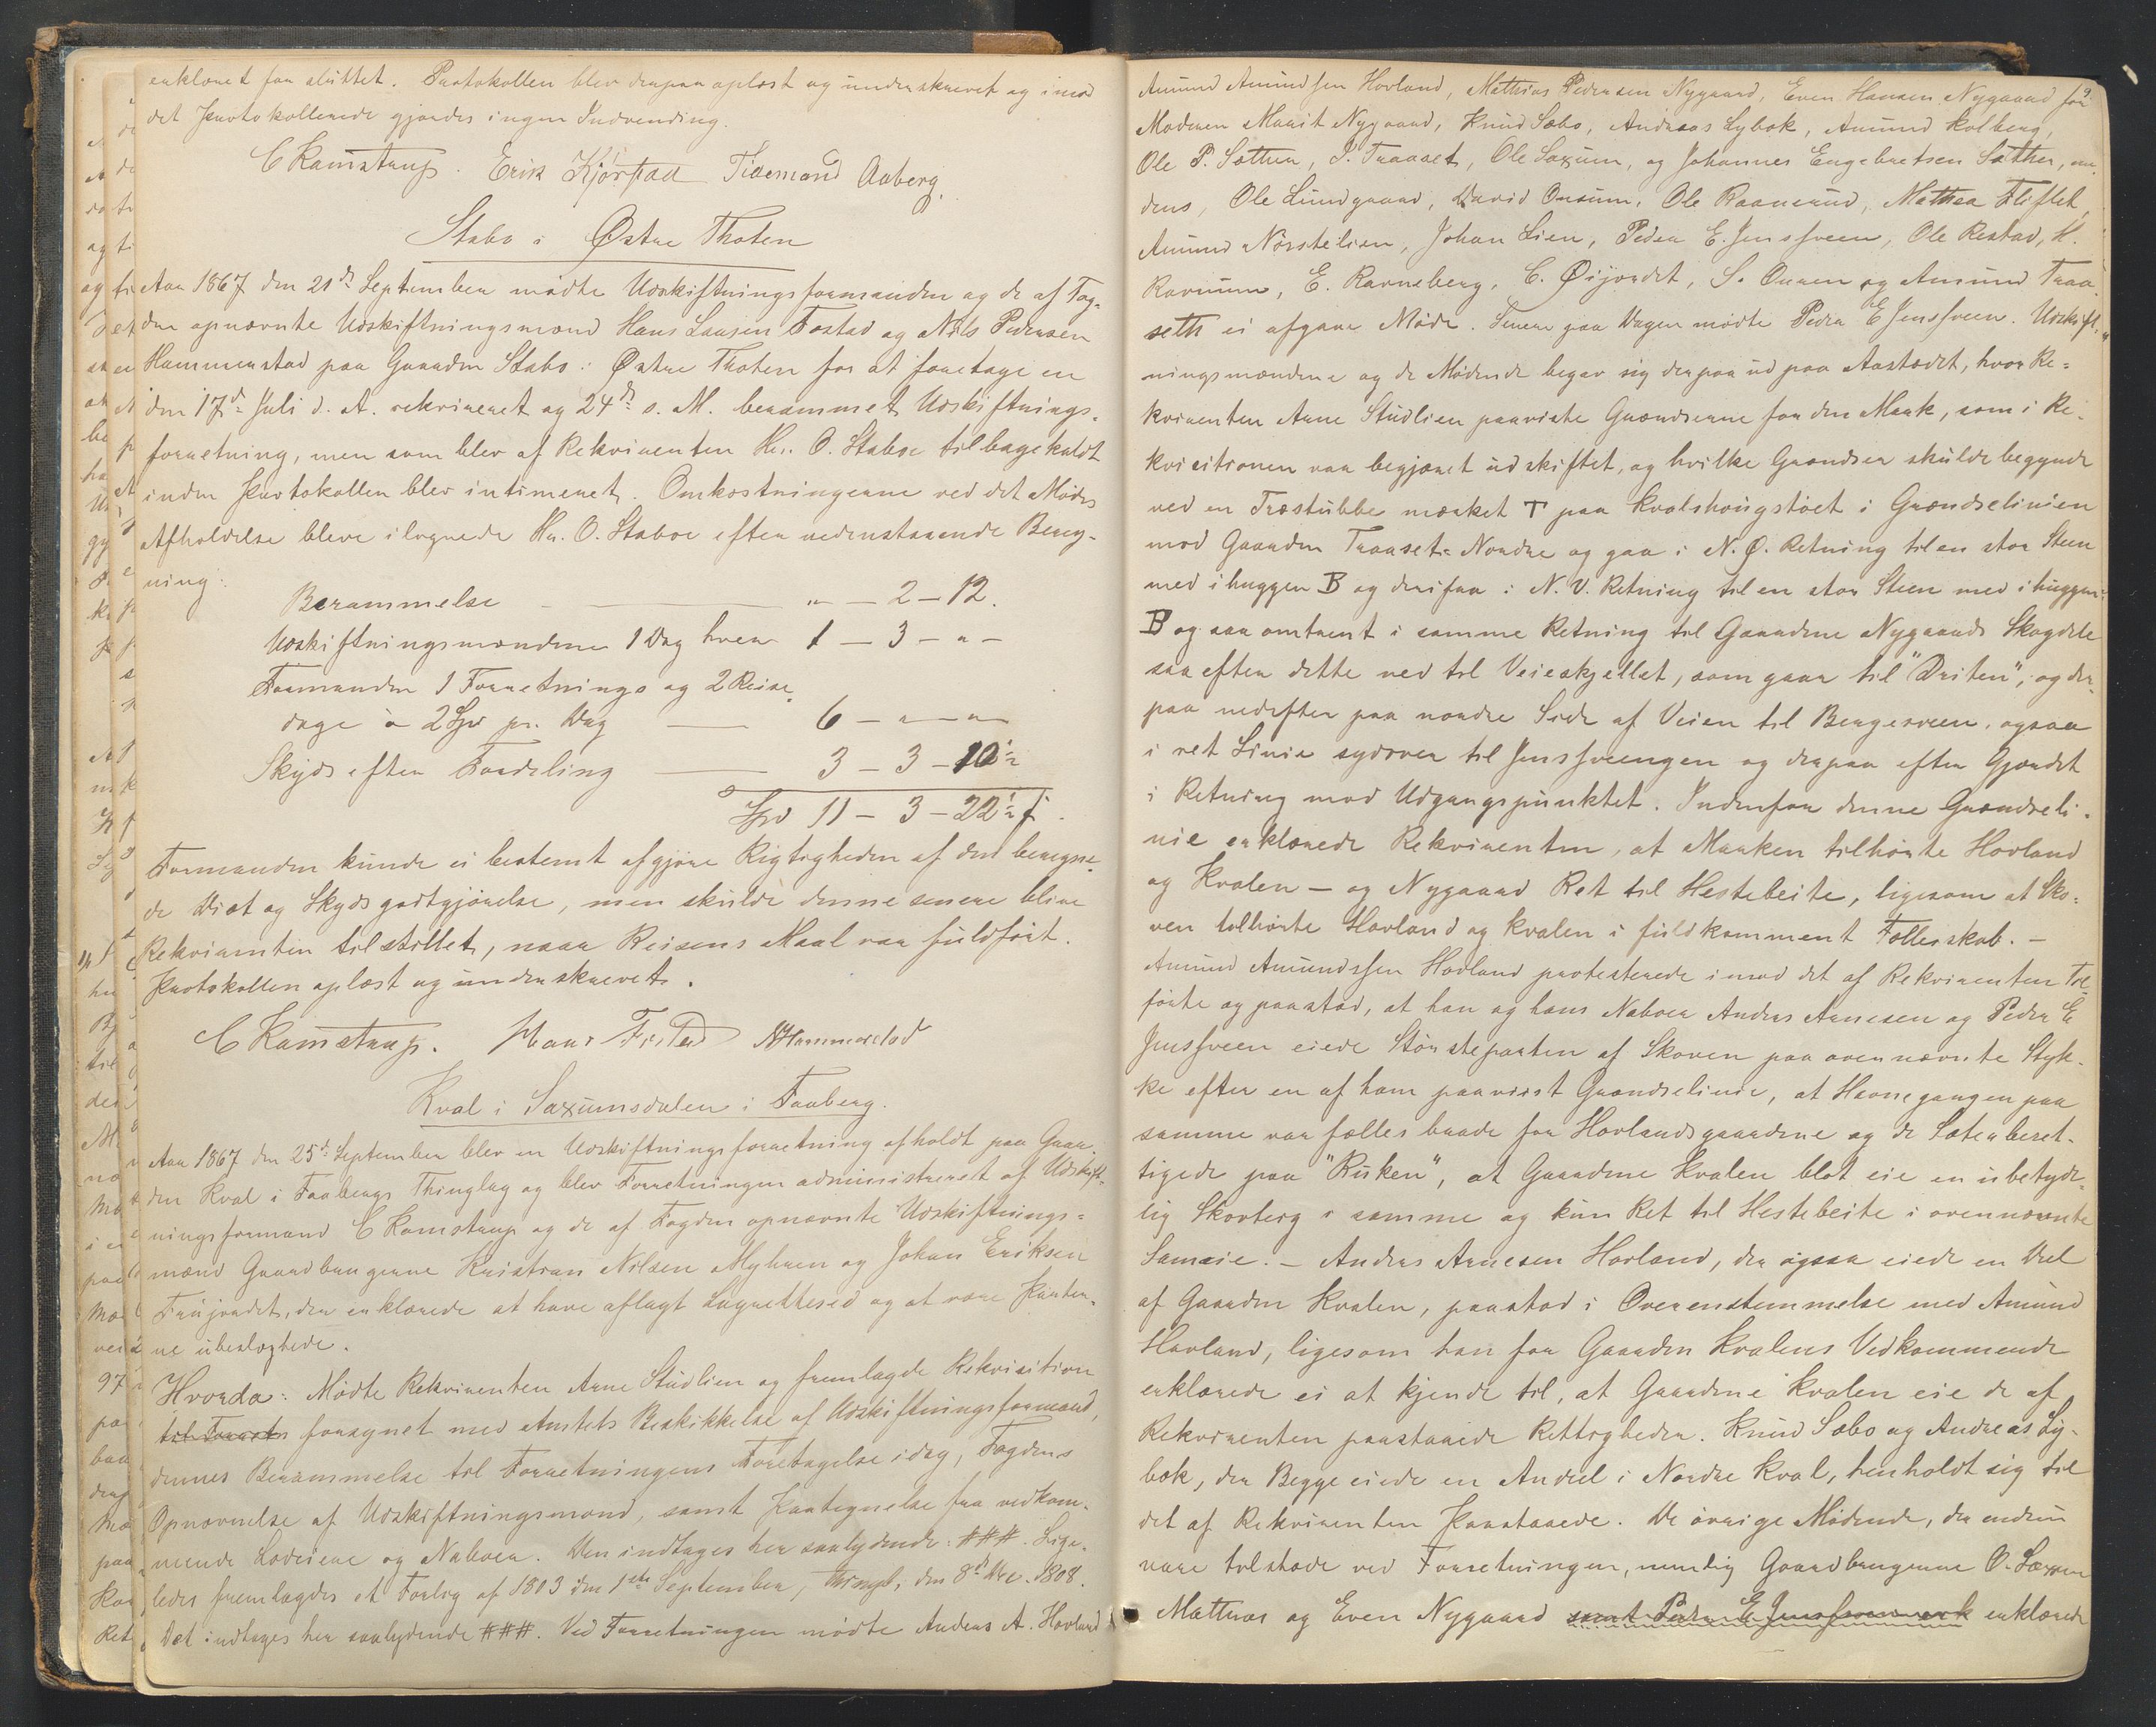 erklæret for sluttet. Protokollen blev derpaa oplæst og underskrevet og imod
det Protokollerede gjordes ingen Indvending.
C Kamstrup. Erik Kjørstad Tidemand Aaberg.
Stabo i Østre Thoten
Aar 1867 den 21de September mødte Udskiftningsformanden og de af Fog-
den opnævnte Udskiftningsmænd Hans Larsen Fostad og Nils Pedersen
Hammerstad paa Gaarden Stabo i Østre Thoten for at foretage en
den 17de Juli d. A. rekvireret og 24de s. M. berammet Udskiftnings-
forretning, men som blev af Rekvirenten Hr. O. Staboe tilbagekaldt
inden Protokollen blev intimeret. Omkostningerne ved det Mødes
Afholdelse bleve ilignede Hr. O. Staboe efter nedenstaaende Bereg-
ning:
Berammelse — " — 2 — 12.
Udskiftningsmændene 1 Dag hver 1 — 3 — " —
Formanden 1 Forretnings og 2 Reise-
dage à 2 Spd pr. Dag — 6 — " — "
Skyds efter Fordeling — 3 — 3 — 10½
Spd 11 — 3 — 22½ ß.
Formanden kunde ei bestemt afgjøre Rigtigheden af den beregne-
de Diæt og Skydsgodtgjørelse, men skulde denne senere blive
Rekvirenten tilstillet, naar Reisens Maal var fuldført.
Protokollen oplæst og underskrevet.
C Kamstrup. Hans Fostad NHammerstad
Kval i Saxumsdalen i Faaberg.
Aar 1867 den 25de September blev en Udskiftningsforretning afholdt paa Gaar-
den Kval i Faabergs Thinglag og blev Forretningen administreret af Udskift-
ningsformand C Kamstrup og de af Fogden opnævnte Udskiftnings-
mænd Gaardbrugerne Kristian Nilsen Myhren og Johan Eriksen
Frujordet, der erklærede at have aflagt Lagrettesed og at være Parter-
ne ubeslægtede.
Hvorda: Mødte Rekvirenten Arne Studlien og fremlagde Rekvisition
til Forretn forsynet med Amtets Beskikkelse af Udskiftningsformand,
dennes Berammelse til Forretningens Foretagelse idag, Fogdens
Opnævnelse af Udskiftningsmænd, samt Paategnelse fra vedkom-
mende Lodeiere og Naboer. Den indtages her saalydende: ###. Lige-
ledes fremlagdes et Forlig af 1803 den 1ste September, thinglyst den 8de Dec. 1808.
Det indtages her saalydende ###. Ved Forretningen mødte Anders A. Hovland
9.
Amund Amundsen Hovland, Mathias Pedersen Nygaard, Even Hansen Nygaard for
Moderen Marit Nygaard, Knud Sæbo, Andreas Lybæk, Amund Kolberg,
Ole P. Sætten, P. Traaset, Ole Saxum, og Johannes Engebretsen Sæther, me-
dens, Ole Lundgaard, David Onsum, Ole Raanerud, Mathea Fliflet,
Amund Nørstelien, Johan Lien, Peder E. Jenssveen, Ole Restad, H.
Ravnum, E. Ravneberg, C. Øijordet, S. Ouren og Amund Traa-
seth ei afgave Møde. Senere paa Dagen mødte Peder E Jenssveen. Udskift-
ningsmændene og de Mødende begav sig derpaa ud paa Aastædet, hvor Re-
kvirenten Arne Studlien paaviste Grændserne for den Mark, som i Re-
kvisitionen var begjæret udskiftet, og hvilke Grændser skulde begynde
ved en Træstubbe mærket T paa Kvalshougstøet i Grændselinien
mod Gaarden Traaset-Nordre og gaa i N. Ø. Retning til en stor Steen
med ihuggen B og derifra i N. V. Retning til en stor Steen med ihuggen
B og saa omtrent i samme Retning til Gaardene Nygaards Skogdele
saa efter dette ned til Veieskjellet, som gaar til "Driten", og der-
paa nedefter paa nordre Side af Veien til Bergesveen, ogsaa
i ret Linie sydover til Jenssveengen og derpaa efter Gjerdet
i Retning mod Udgangspunktet. Indenfor denne Grændseli-
nie erklærede Rekvirenten, at Marken tilhørte Hovland
og Kvalen — og Nygaard Ret til Hestebeite, ligesom at Sko-
ven tilhørte Hovland og Kvalen i fuldkomment Fællesskab. —
Amund Amundssen Hovland protesterede imod det af Rekvirenten Til-
førte og paastod, at han og hans Naboer Anders Arnesen og Peder E
Jenssveen eiede Størsteparten af Skoven paa ovennævnte Styk-
ke efter en af ham paavisst Grændselinie, at Havnegangen paa
samme var fælles baade for Hovlandsgaardene og de Sæterberet-
tigede paa "Ruken", at Gaardene Kvalen blot eie en ubetyde-
lig Skovteig i samme og kun Ret til Hestebeite i ovennævnte
Sameie. — Anders Arnesen Hovland, der ogsaa eiede en Deel
af Gaarden Kvalen, paastod i Overenstemmelse med Amund
Hovland, ligesom han for Gaarden Kvalens Vedkommende
erklærede ei at kjende til, at Gaardene Kvalen eie de af
Rekvirenten paastaaede Rettigheder. Knud Sæbo og Andreas Ly-
bæk, der Begge eiede en Andeel i Nordre Kval, henholdt sig til
det af Rekvirenten Paastaaede. De øvrige Mødende, der endnu
vare tilstede ved Forretningen, nemlig Gaardbrugerne O. Saxum
Mathias og Even Nygaard samt Peder E Jenssveen erklærede